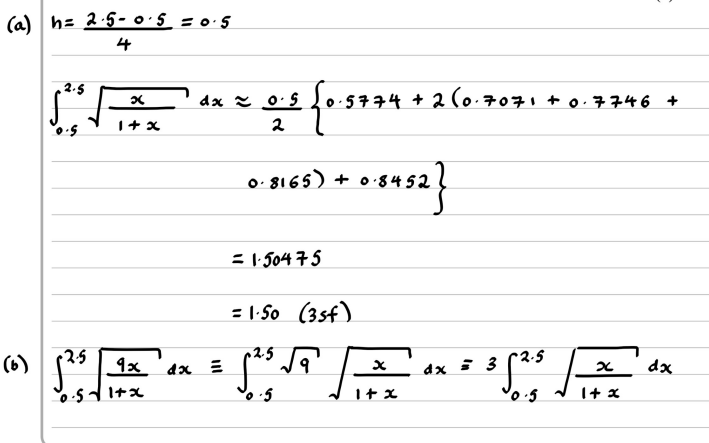 (a) h = (2.5 - 0.5)/4 = 0.5
∫_{0.5}^{2.5} √(x/(1+x)) dx ≈ 0.5/2 {0.5774 + 2(0.7071 + 0.7746 +
0.8165) + 0.8452}
= 1.50475
= 1.50 (3sf)
(b) ∫_{0.5}^{2.5} √(9x/(1+x)) dx ≡ ∫_{0.5}^{2.5} √9 √(x/(1+x)) dx ≡ 3 ∫_{0.5}^{2.5} √(x/(1+x)) dx